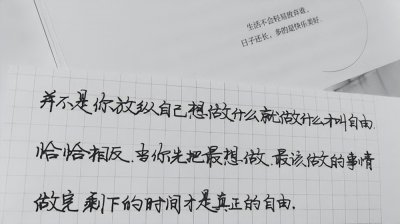 生活不会轻易放弃谁，
日子还长，多的是快乐美好.
并不是你放纵自己想做什么就做什么才叫自由.
恰恰相反.当你先把最想做.最该做的事情
做完剩下的时间才是真正的自由.